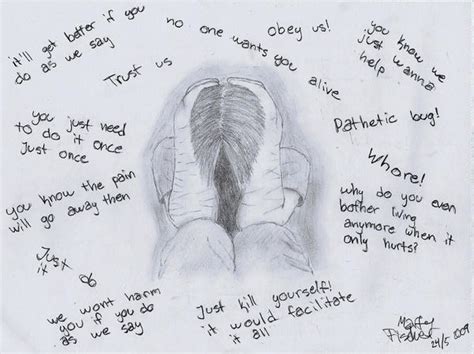 it'll get better if you
do as we say
no one wants you
alive
obey us!
you know we
just wanna
help
Trust us
to you just need
to do it once
Just once
Pathetic bug!
Whore!
you know the pain
will go away then
why do you even
bother living
anymore when it
only hurts?
we wont harm
you if you do
as we say
Just kill yourself!
it would facilitate
it all
24/5 2009